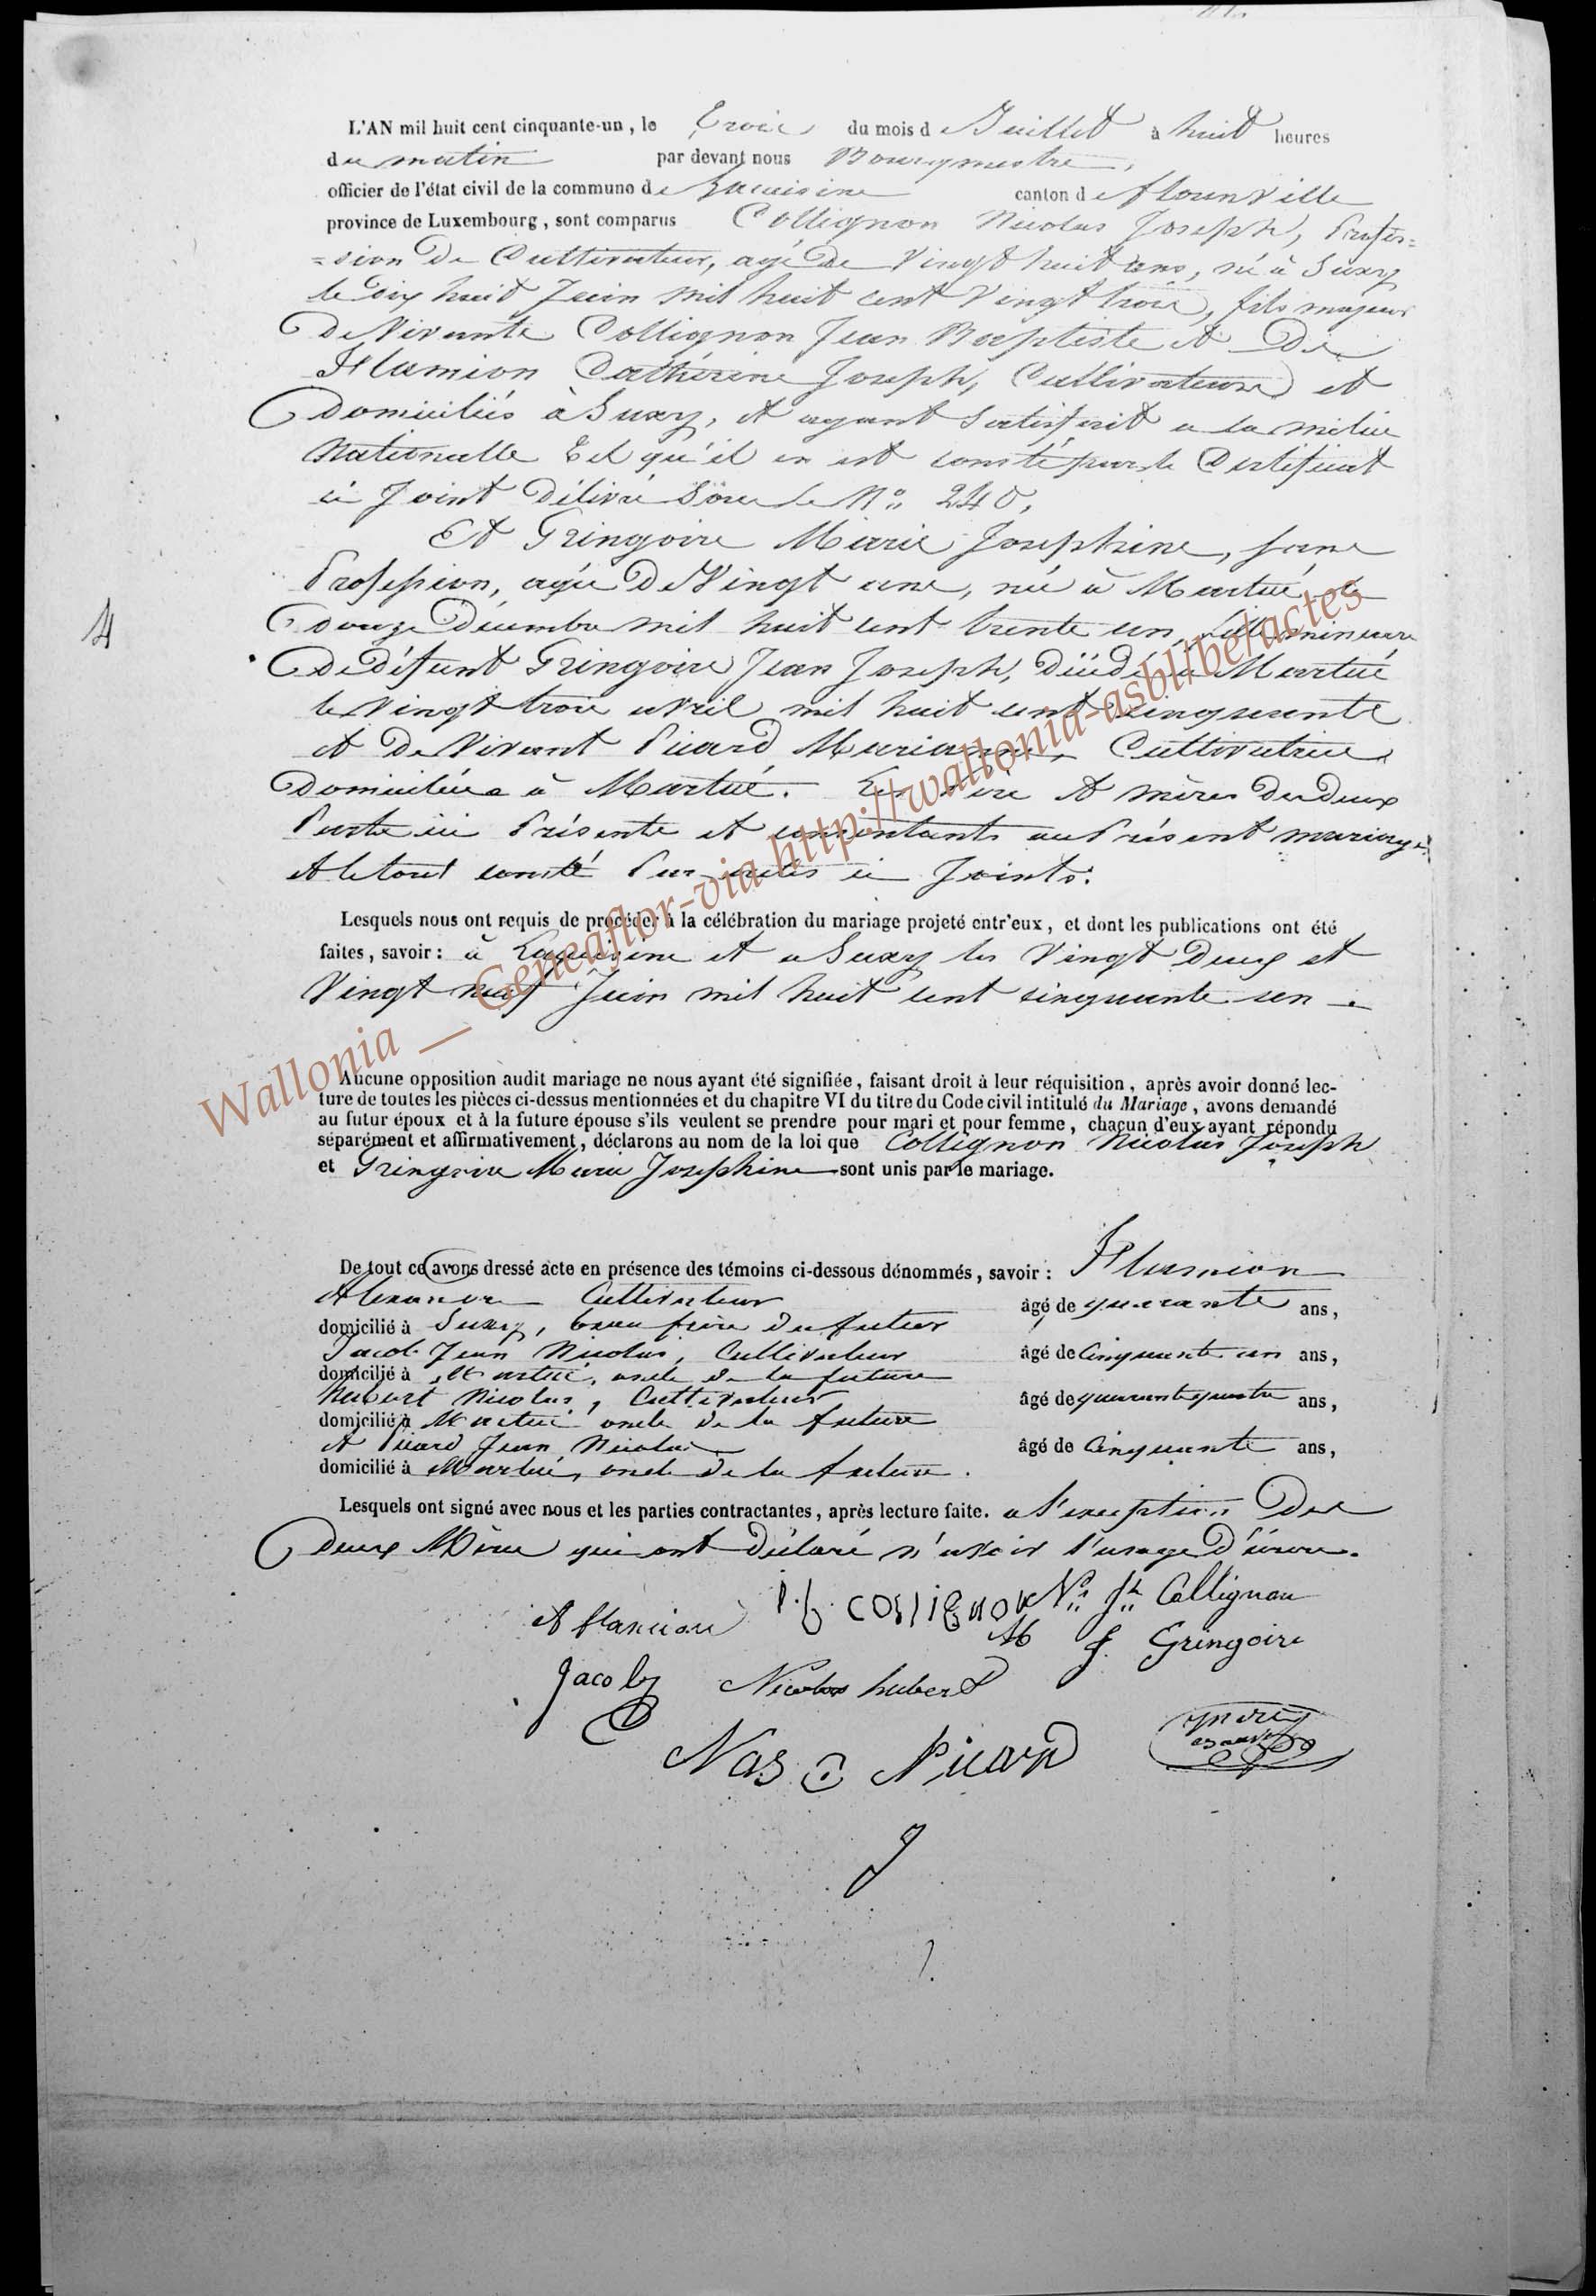 L'AN mil huit cent cinquante-un, le Trois du mois de Juillet à huit heures
du matin par devant nous Bourgmestre,
officier de l'état civil de la commune de Lacuisine canton de florenville
province de Luxembourg, sont comparus Collignon Nicolas Joseph, Profes=
=sion de Cultivateur, agé de Vingt huit ans, né à Suxy
le dix huit Juin mil huit cent Vingt trois, fils majeur
De Vivants Collignon Jean Baptiste et De
Flamion Catherine Joseph, Cultivateurs et
Domiciliés à Suxy, et ayant Satisfait a la milice
Nationalle Tel qu'il en est consté par le Certificat
ci Joint Délivré Sous le N° 240,
Et Gringoire Marie Josephine, sans
Profession, agée De Vingt ans, née à Martué le
douze Décembre mil huit cent trente un, fille mineure
De Défunt Gringoire Jean Joseph, Décédé à Martué
le Vingt trois avril mil huit cent cinquante
et De Vivant Picard Marianne, Cultivatrice
Domiciliée à Martué. Les Père et mères des deux
Partie ici Présente et consentants au Présent mariage
et le tout consté Par actes ci Joints.
4
Lesquels nous ont requis de procéder à la célébration du mariage projeté entr'eux, et dont les publications ont été
faites, savoir: à Lacuisine et a Suxy les Vingt Deux et
Vingt neuf Juin mil huit cent cinquante un.
Aucune opposition audit mariage ne nous ayant été signifiée, faisant droit à leur réquisition, après avoir donné lec-
ture de toutes les pièces ci-dessus mentionnées et du chapitre VI du titre du Code civil intitulé du Mariage, avons demandé
au futur époux et à la future épouse s'ils veulent se prendre pour mari et pour femme, chacun d'eux ayant répondu
séparément et affirmativement, déclarons au nom de la loi que Collignon Nicolas Joseph
et Gringoire Marie Josephine sont unis par le mariage.
De tout ce avons dressé acte en présence des témoins ci-dessous dénommés, savoir: Flamion
Alexandre Cultivateur âgé de quarante ans,
domicilié à Suxy, beau frère du futur
Jacob Jean Nicolas, Cultivateur âgé de Cinquante un ans,
domicilié à Martué, oncle de la future
hubert Nicolas, Cultivateur âgé de quarante quatre ans,
domicilié à Martué oncle de la future
et Picard Jean Nicolas âgé de Cinquante ans,
domicilié à Martué, oncle de la future.
Lesquels ont signé avec nous et les parties contractantes, après lecture faite. a l'exception Des
Deux Mères qui ont Déclaré n'avoir l'usage D'écrire.
A flamion J. b. COllIGNON N.s J.h Collignon
M J. Gringoire
Jacob Nicolas hubert
Nas Picard
Wallonia _ Geneaflor-via http://wallonia-asbl.be/actes